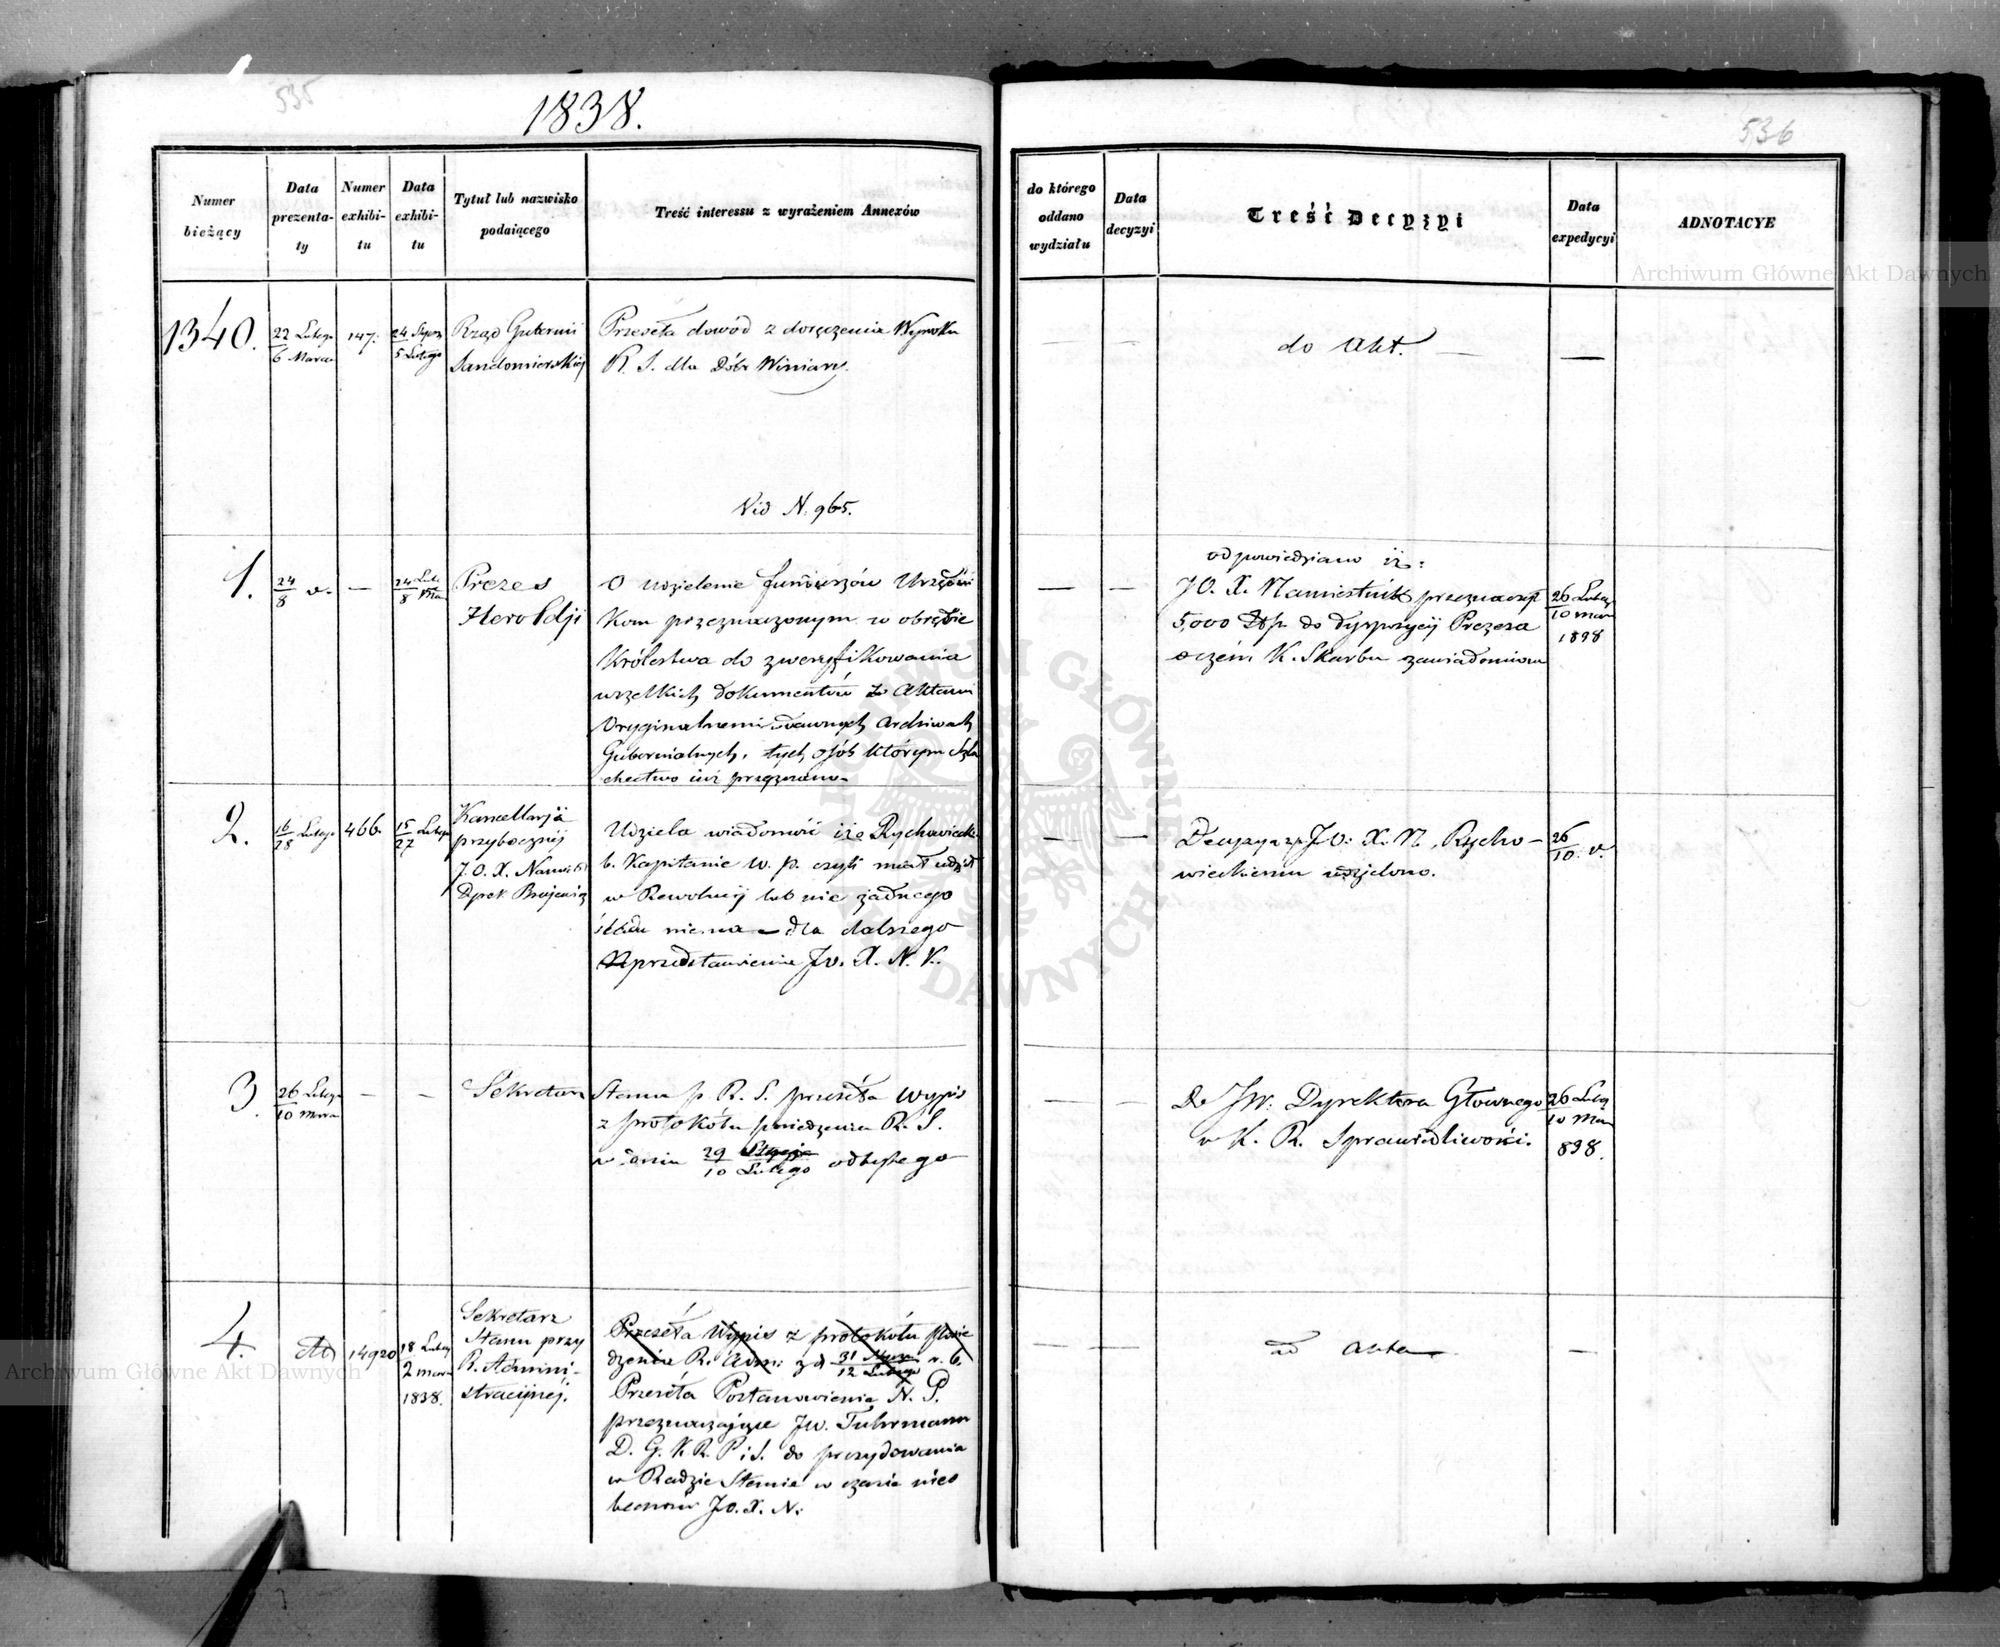 535
1838.
536
Numer bieżący
Data prezenta-ty
Numer exhibi-tu
Data exhibi-tu
Tytuł lub nazwisko podaiącego
Treść interessu z wyrażeniem Annexów
do którego oddano wydziału
Data decyzyi
Treść Decyzyi
Data expedycyi
ADNOTACYE
1340.
22 Lutego
6 Marca
147.
24
5 Lutego
Rząd Gubernii
Sandomierskiej
Przeseła dowód z doręczenia Wyroku
R. S. dla Dóbr Winiary.
Vid N. 965.
— —
do Akt. —
—
1.
24
8 v.
—
24 Lut.
8 Mar
Prezes
Heroldji
O udzielenie funduszów Urzędni
kom przeznaczonym w obrębie
Królestwa do zweryfikowania
wszelkich dokumentów z Aktami
Oryginalnemi dawnych Archiwach
Gubernialnych, tych osób którym Szla
chectwo już przyznano
— —
odpowiedziano iż:
JO. X. Namiestnik przeznaczył
5,000 Złp. do dyspozycyi Prezesa
o czém K. Skarbu zawiadomiona
26 Luteg
10 Mar
1838
2.
16 Lutego
28
466.
15 Lutego
27
Kancellarja
przybocznej
J. O. X. Namiest
Dyrek
Udziela wiadomość iże Rychowiecki
b. Kapitanie w. p. czyli miał udział
w Rewolucij lub nie żadnego
śladu niema — dla dalszego
przedstawienia Jo. X. N. K.
— —
Decyzya Jo: X. N. Rycho-
wieckiemu udzielono.
26
10. v.
3.
26 Lutego
10 Marca
— —
Sekretarz Stanu p. R. S. przeseła wypis
z protokółu posiedzenia R. S.
w dniu 29 Stycznia
10 Lutego odbytego
— —
Do JW. Dyrektora Głównego
w K. R. Sprawiedliwości.
26 Lutg
10 Mar
838.
4.
14920
18 Luteg
2 marca
1838.
Sekretarz
Stanu przy
R. Admini-
stracyjnej.
Przeseła Wypis z protokółu posie
dzenia R. Adm: z d 31 Stycz
12 Lutego v. b.
Przeseła Postanowienie N. P.
przeznaczające Jw. Fuhrmann
D. G. K. R. P i S. do prezydowania
w Radzie Stanu w czasie nieo
becności Jo. X. N:
— —
ad Akta
—
Archiwum Główne Akt Dawnych
ARCHIWUM GŁÓWNE AKT DAWNYCH
Archiwum Główne Akt Dawnych